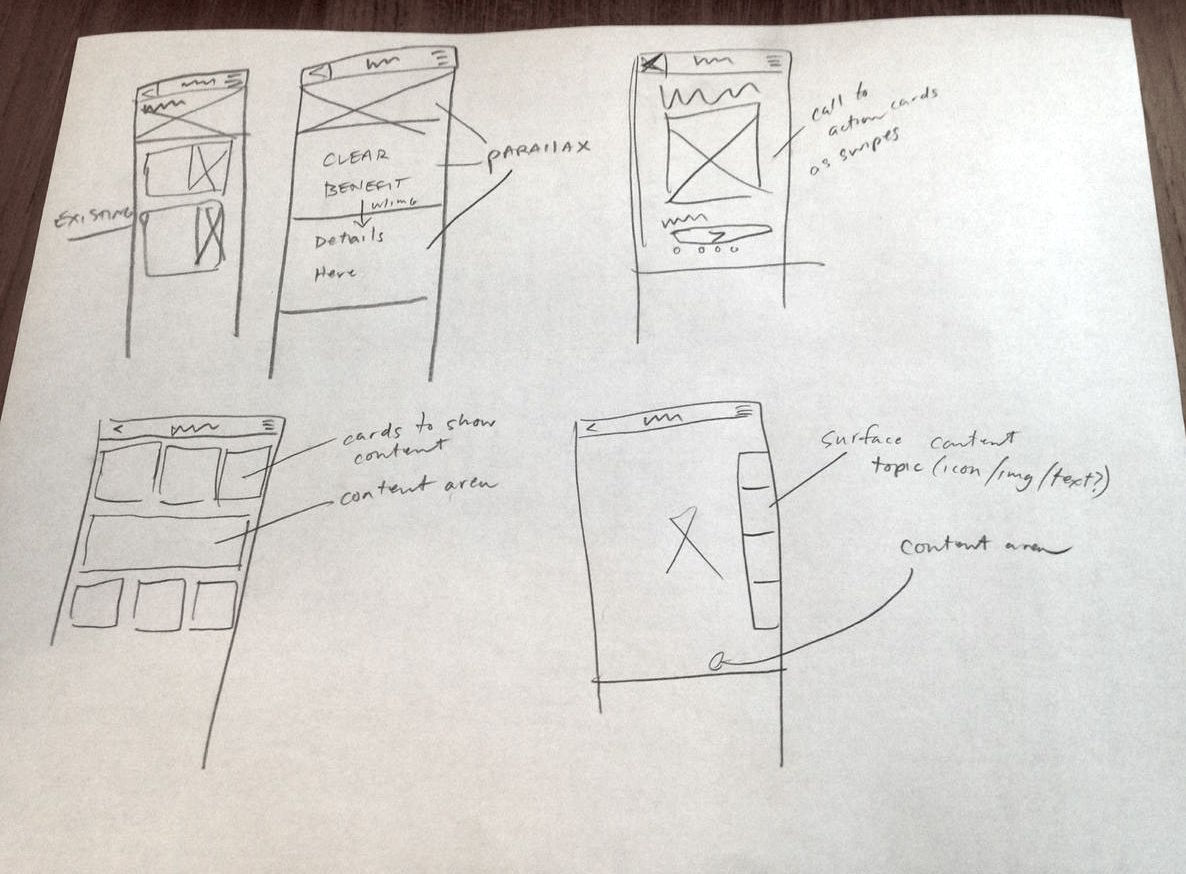 EXISTING
CLEAR
BENEFIT
w/img
Details
Here
PARAllAX
call to
action cards
as swipes
cards to show
content
content area
Surface content
topic (icon/img/text?)
content area